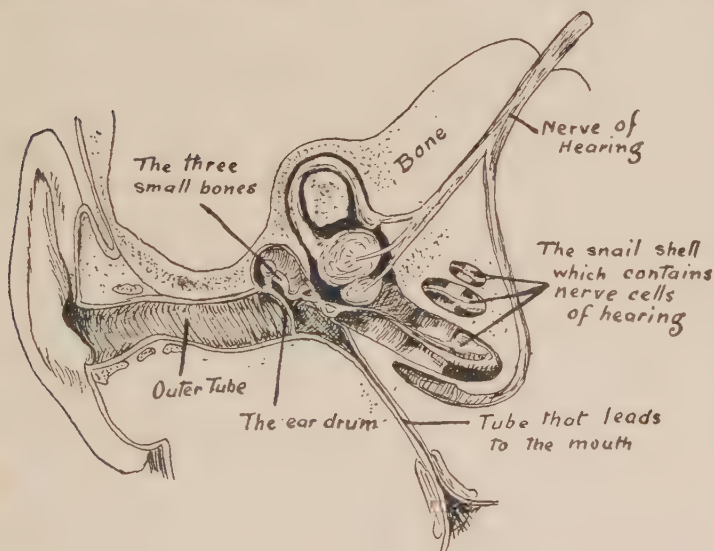 Bone
Nerve of
Hearing
The three
small bones
The snail shell
which contains
nerve cells
of hearing
Outer Tube
The ear drum
Tube that leads
to the mouth